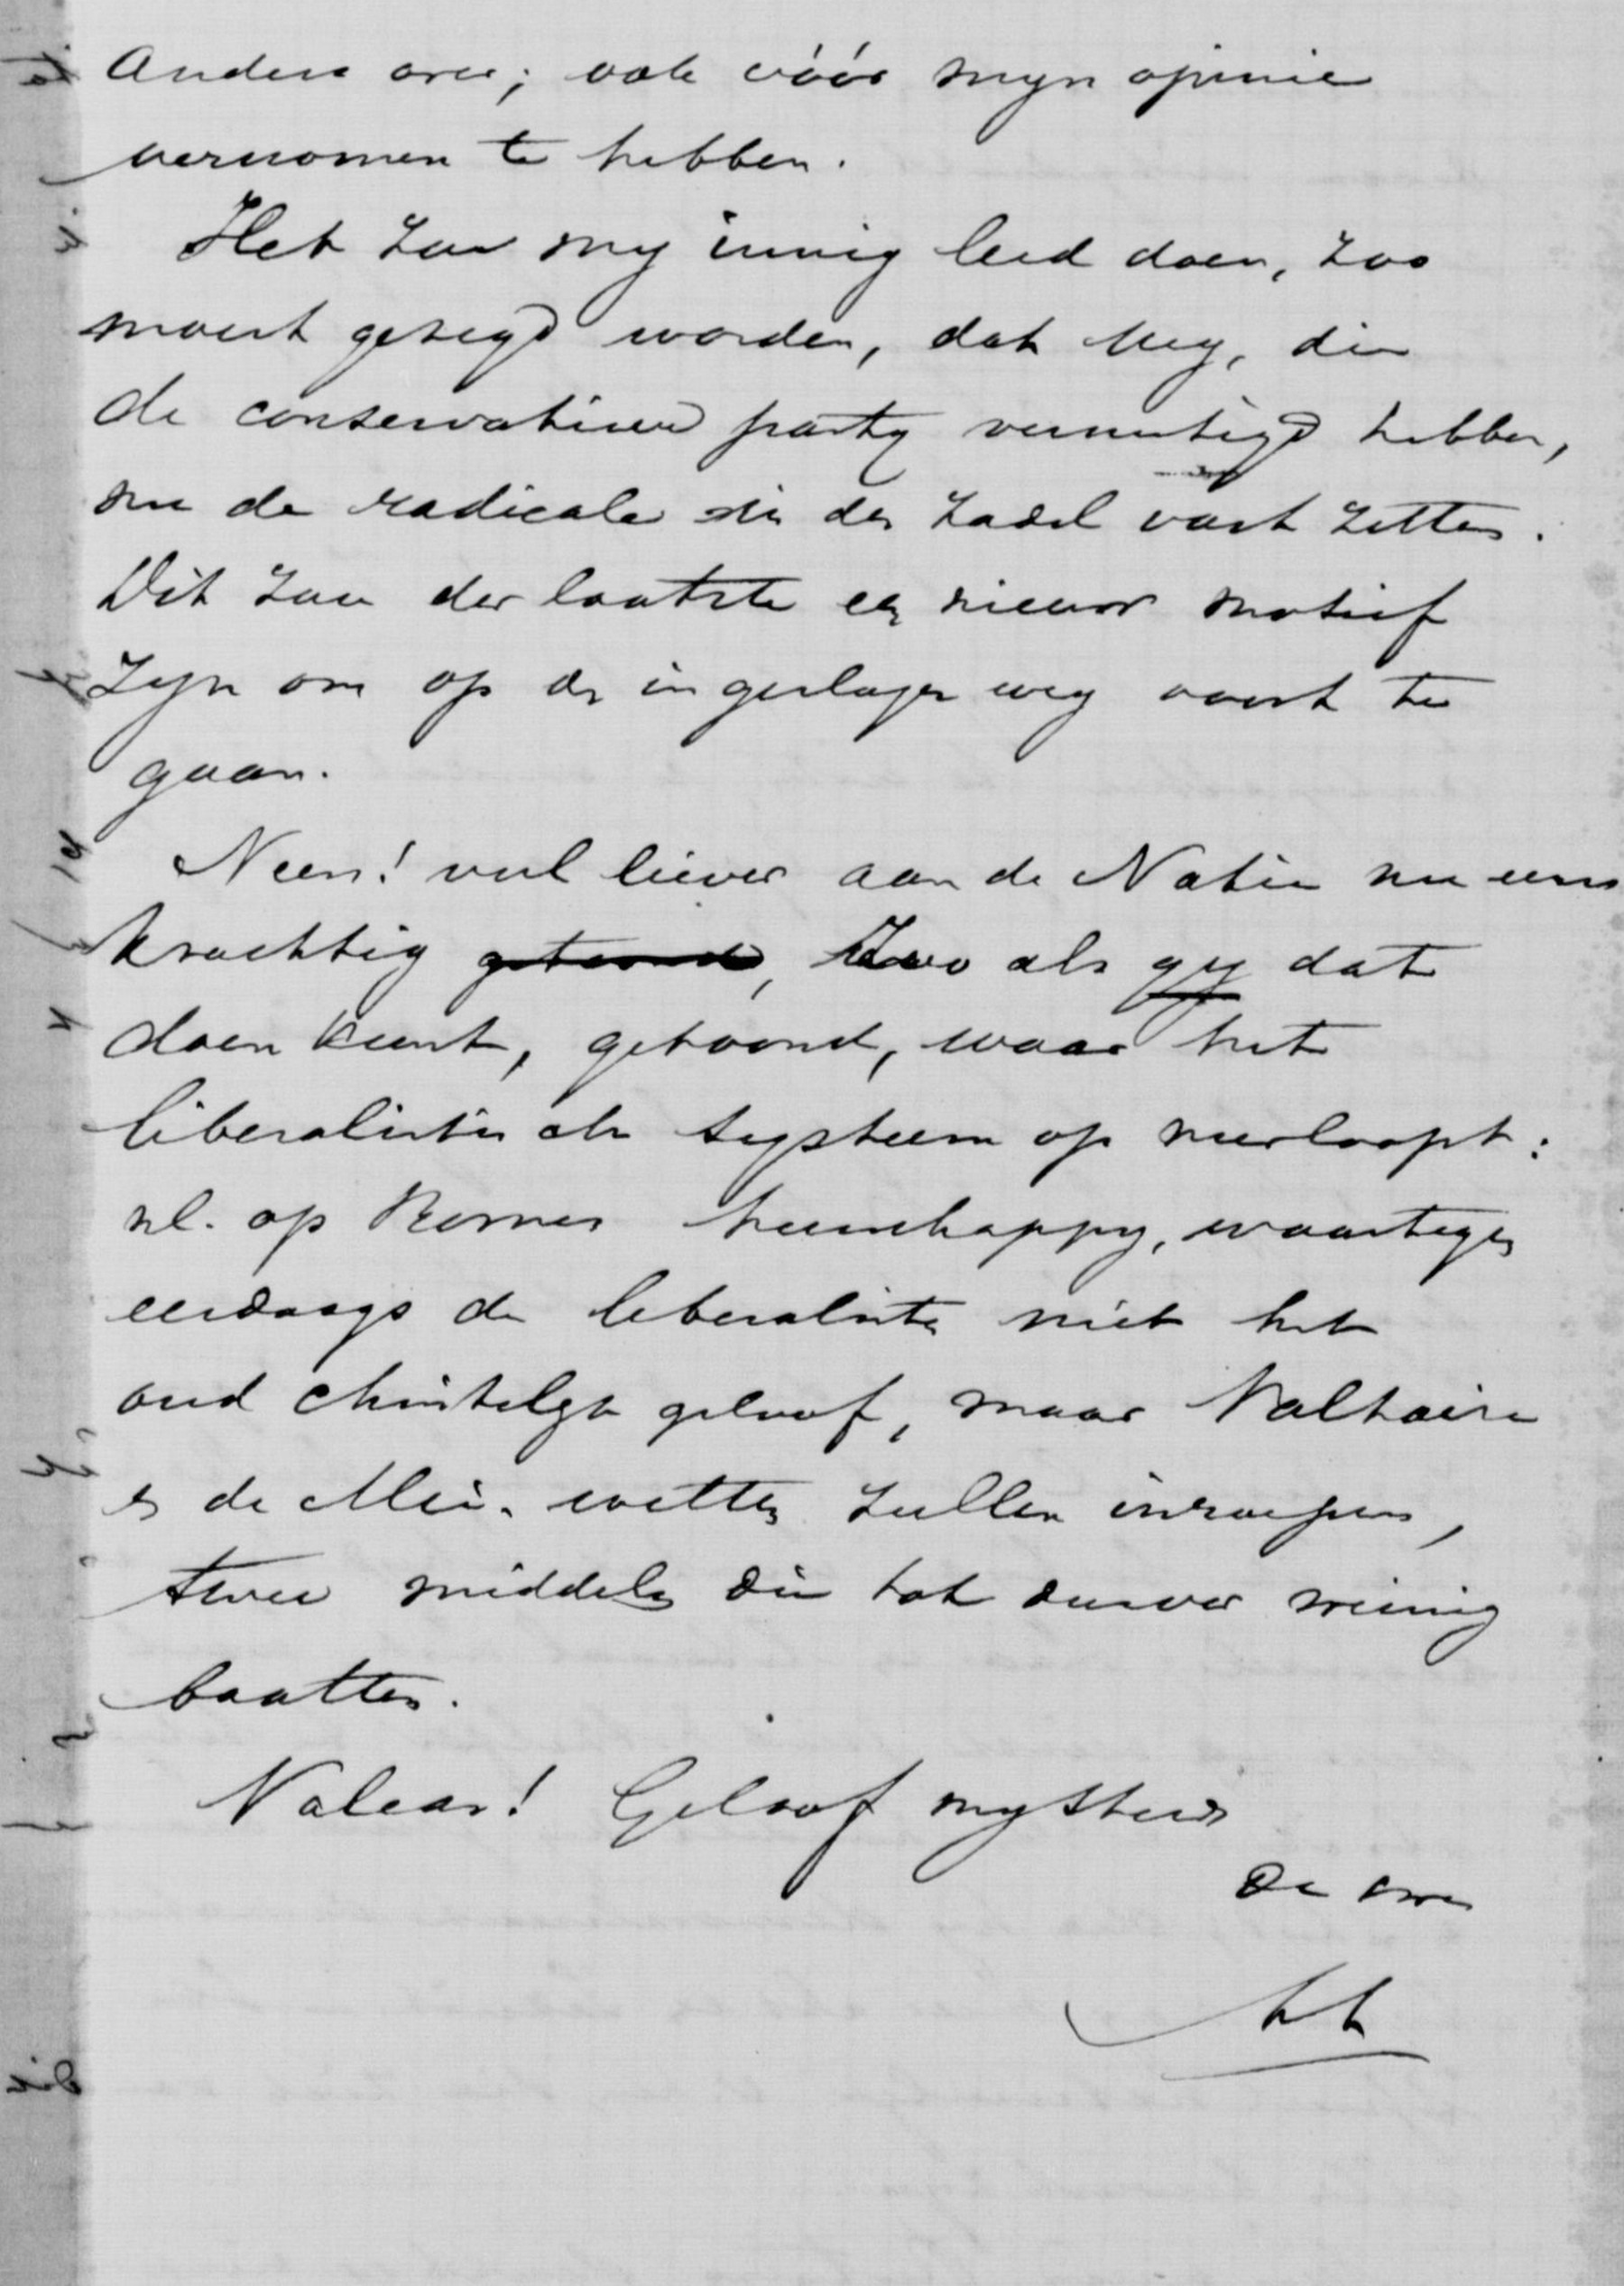 anders over; ook vóór myn opinie
vernomen te hebben.
Het zou my innig leed doen, zoo
moest gezegd worden, dat wy, die
de conservatieve party vernietigd hebben,
nu de radicale in den zadel vast zetten.
Dit zou der laatste een nieuw motief
zyn om op de ingeslagen weg voort te
gaan.
Neen! veel liever aan de Natie nu eens
krachtig getoond, Zoo als gy dat
doen kunt, getoond, waar het
liberalistisch systeem op neerloopt:
nl. op Romes heerschappy, waartegen
eerdaags de liberalisten niet het
oud christelyk geloof, maar Voltaire
en de Mei-wetten zullen inroepen,
twee middelen die tot dusver weinig
baatten.
Valear! Geloof my steeds
de uwe